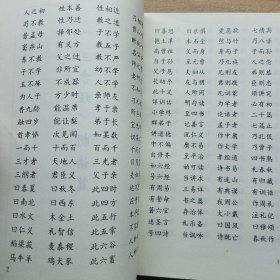 人之初 性本善 性相近
苟不教 性乃迁 教之道
昔孟母 择邻处 子不学
窦燕山 有义方 教五子
养不教 父之过 教不严
子不学 非所宜 幼不学
玉不琢 不成器 人不学
为人子 方少时 亲师友
香九龄 能温席 孝于亲
融四岁 能让梨 弟于长
首孝悌 次见闻 知某数
一而十 十而百 百而千
三才者 天地人 三光者
三纲者 君臣义 父子亲
曰春夏 曰秋冬 此四时
曰南北 曰西东 此四方
曰水火 木金土 此五行
曰仁义 礼智信 此五常
稻粱菽 麦黍稷 此六谷
马牛羊 鸡犬豕 此六畜
2
曰喜怒 曰哀惧 爱恶欲 七情具
匏土革 木石金 丝与竹 乃八音
高曾祖 父而身 身而子 子而孙
自子孙 至玄曾 乃九族 人之伦
父子恩 夫妇从 兄则友 弟则恭
长幼序 友与朋 君则敬 臣则忠
此十义 人所同 凡训蒙 须讲究
详训诂 明句读 为学者 必有初
小学终 至四书 论语者 二十篇
群弟子 记善言 孟子者 七篇止
讲道德 说仁义 作中庸 子思笔
中不偏 庸不易 作大学 乃曾子
自修齐 至平治 孝经通 四书熟
如六经 始可读 诗书易 礼春秋
号六经 当讲求 有连山 有归藏
有周易 三易详 有典谟 有训诰
有誓命 书之奥 我周公 作周礼
著六官 存治体 大小戴 注礼记
述圣言 礼乐备 曰国风 曰雅颂
号四诗 当讽咏 诗既亡 春秋作